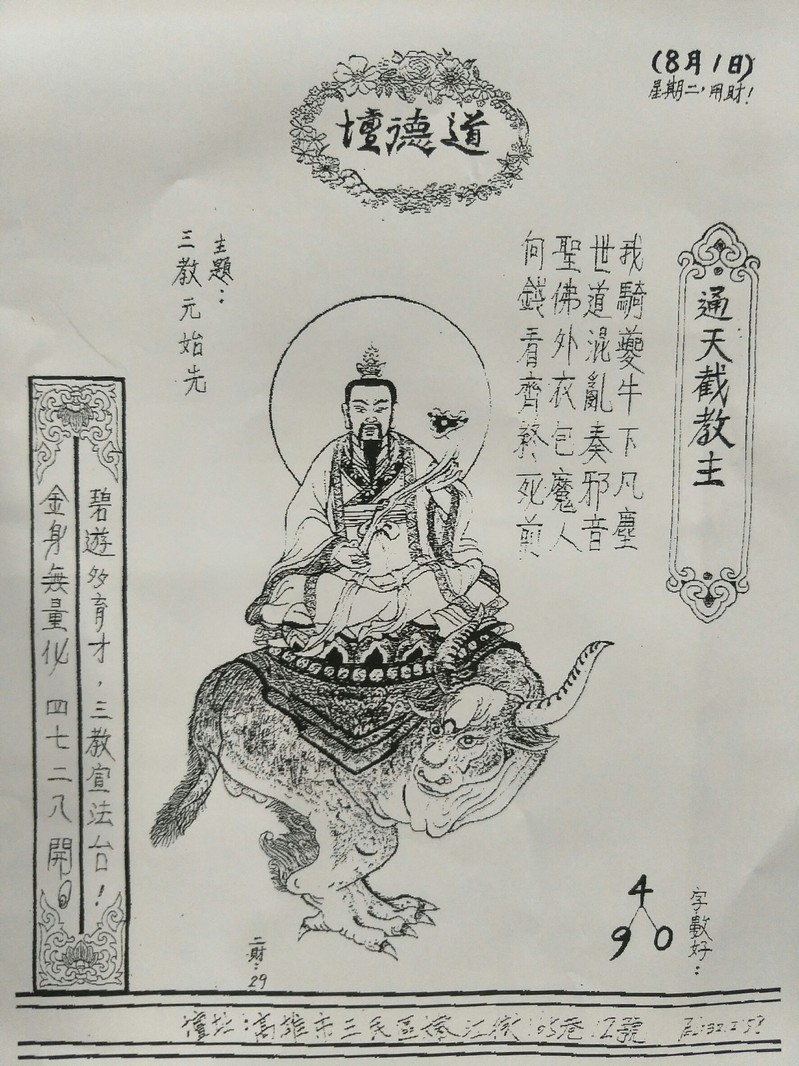 (8月1日)
星期二，用財！
道德壇
通天截教主
我騎夔牛下凡塵
世道混亂奏邪音
聖佛外衣包魔人
向錢看齊終死前
主題：
三教元始先
碧遊多育才，三教宣法台！
金身無量化 四七二八開
字數好：
4
9 0
二財：29
壇址：高雄市三民區 江街 65巷12號